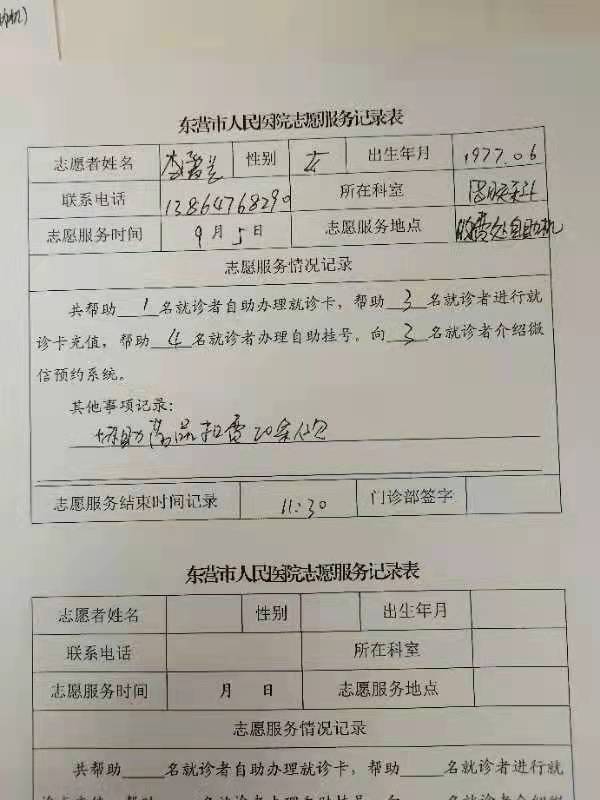 东营市人民医院志愿服务记录表
志愿者姓名 李 性别 女 出生年月 1977.06
联系电话 13864768290 所在科室
志愿服务时间 9月5日 志愿服务地点 收费处自助机
志愿服务情况记录
共帮助1名就诊者自助办理就诊卡，帮助3名就诊者进行就
诊卡充值，帮助4名就诊者办理自助挂号。向3名就诊者介绍微
信预约系统。
其他事项记录：
协助药品扣费20余人
志愿服务结束时间记录 11:30 门诊部签字
东营市人民医院志愿服务记录表
志愿者姓名 性别 出生年月
联系电话 所在科室
志愿服务时间 月 日 志愿服务地点
志愿服务情况记录
共帮助____名就诊者自助办理就诊卡，帮助____名就诊者进行就